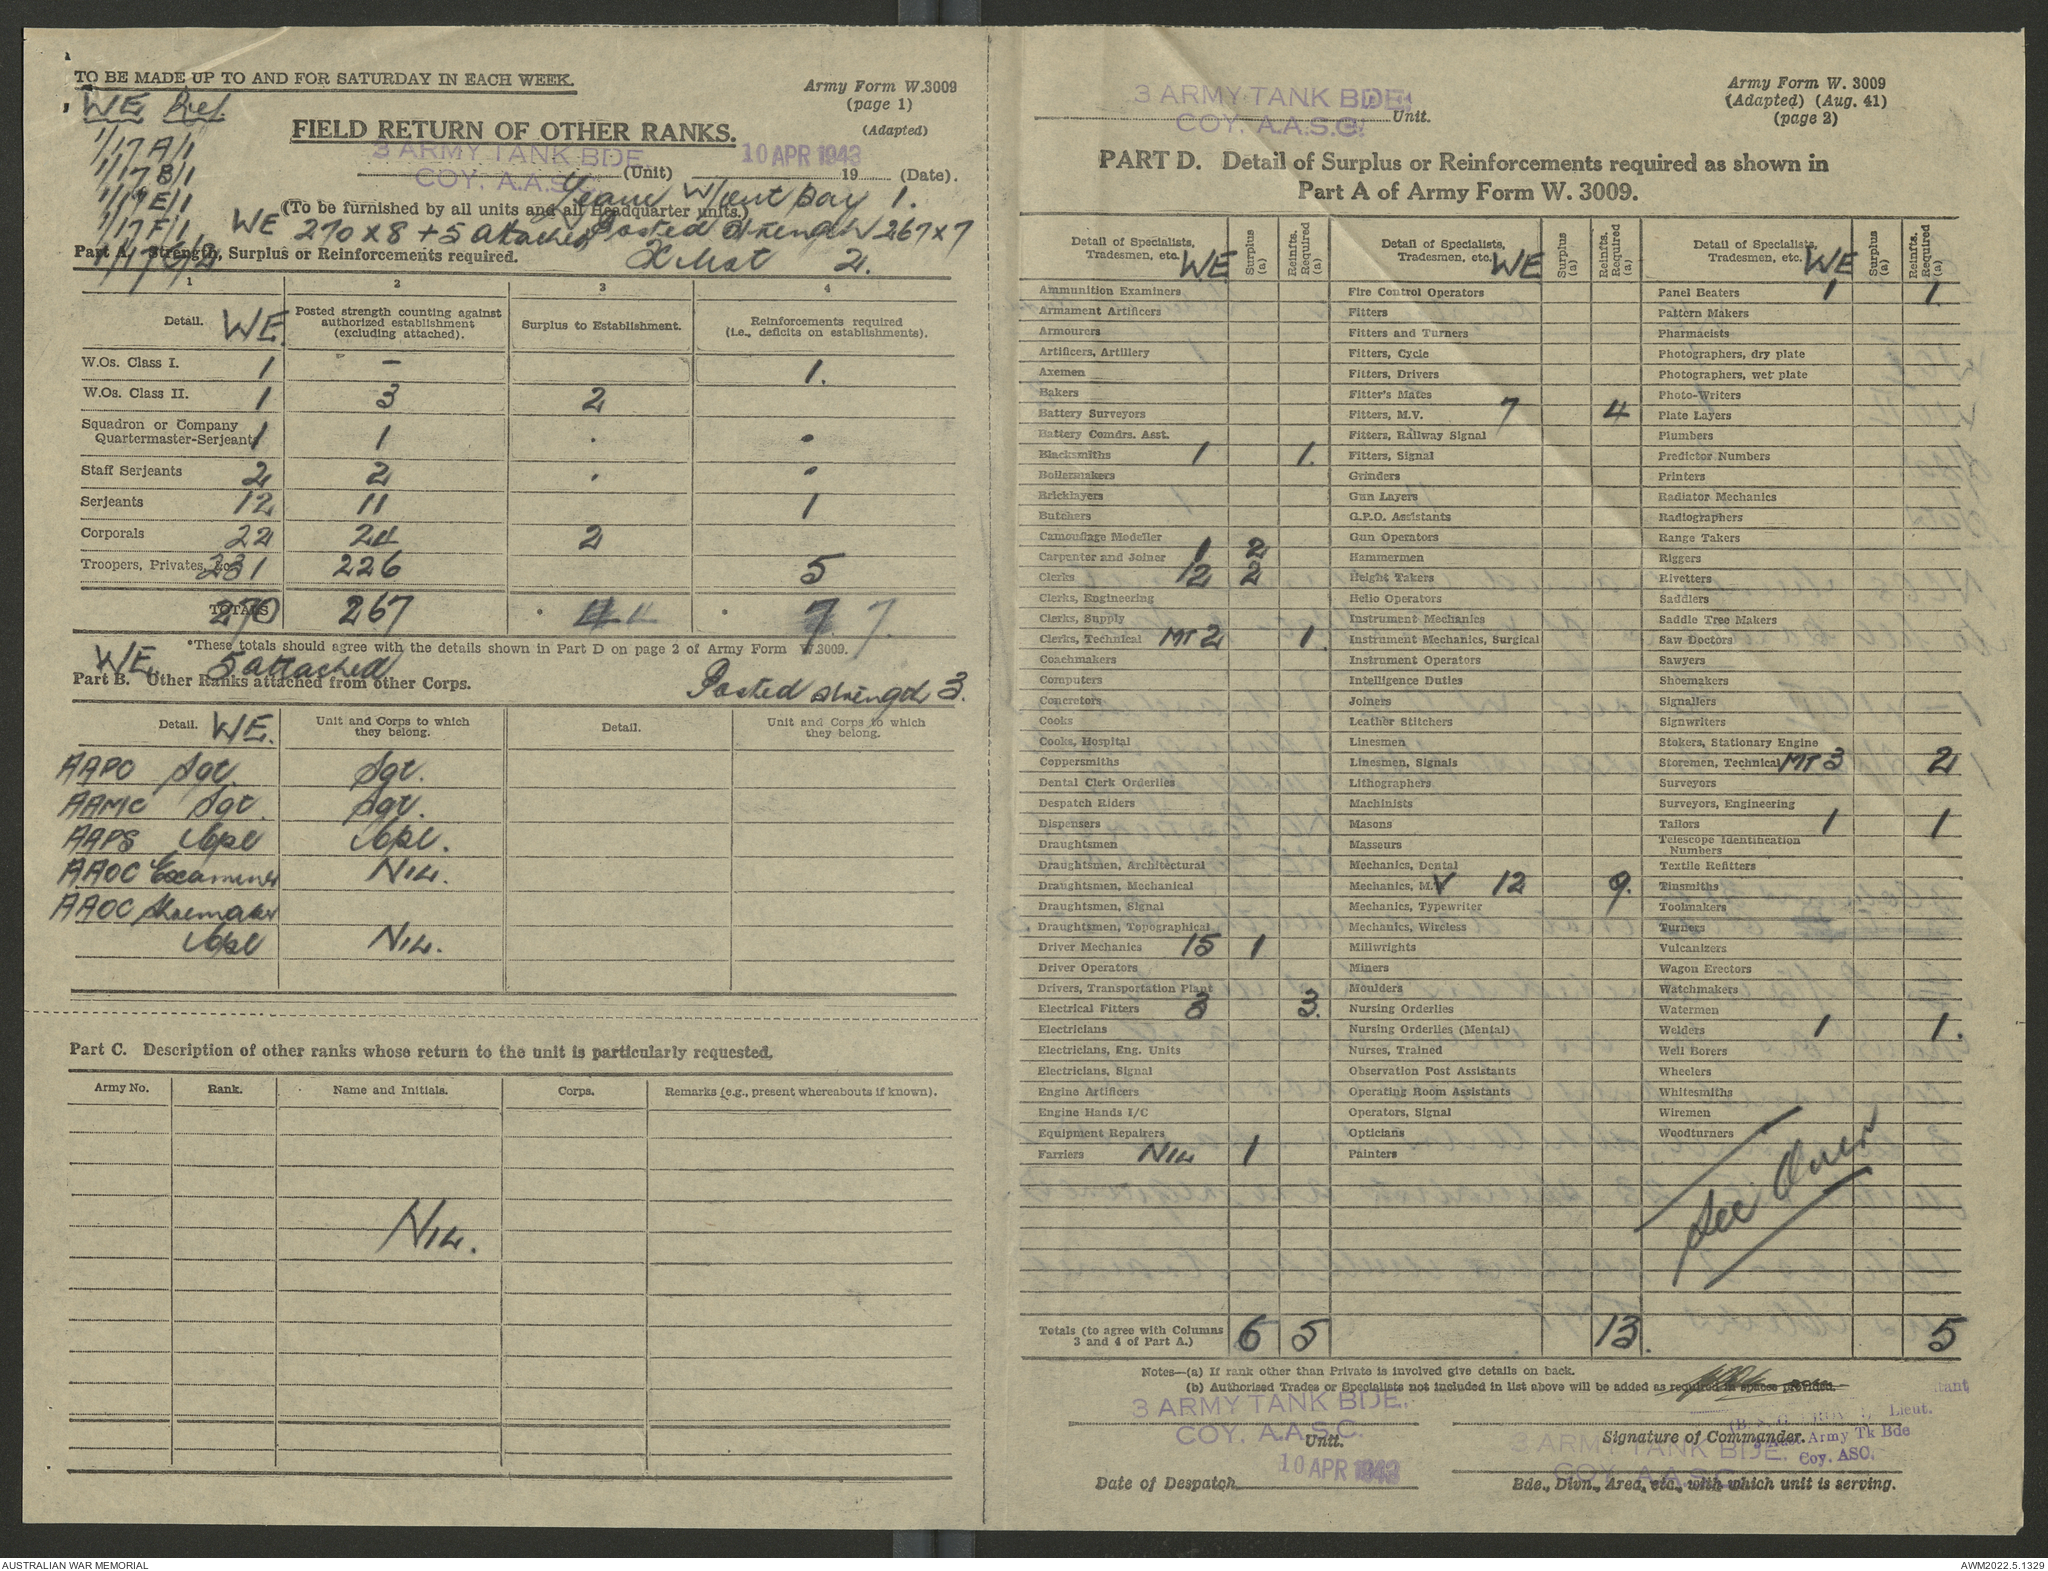 TO BE MADE UP TO AND FOR SATURDAY IN EACH WEEK.
Army Form W.3009
(page 1)
(Adapted)
WE Ref.
1/17 A/1
1/17 B/1
1/17 E/1
1/17 F/1
1/17 G/2
FIELD RETURN OF OTHER RANKS.
3 ARMY TANK BDE.
COY. A.A.S.C.
(Unit)
10 APR 1943
19 (Date).
(To be furnished by all units and all Headquarter units.)
Leave without pay 1.
WE 270 x 8 + 5 attached
Posted strength 267 x 7
X list 2.
Part A. Strength, Surplus or Reinforcements required.
1 2 3 4
Detail. WE.
Posted strength counting against authorized establishment (excluding attached).
Surplus to Establishment.
Reinforcements required (i.e., deficits on establishments).
W.Os. Class I. 1 – 1.
W.Os. Class II. 1 3 2
Squadron or Company
Quartermaster-Serjeants 1 1 . .
Staff Serjeants 2 2 . .
Serjeants 12 11 1
Corporals 22 24 2
Troopers, Privates, &c. 231 226 5
TOTALS 270 267 * 4 4 * 7 7.
*These totals should agree with the details shown in Part D on page 2 of Army Form W.3009.
WE. 5 attached
Part B. Other Ranks attached from other Corps.
Posted strength 3.
Detail. WE.
Unit and Corps to which they belong.
Detail.
Unit and Corps to which they belong.
AAPC Sgt. Sgt.
AAMC Sgt. Sgt.
AAPS Cpl Cpl.
AAOC Examiner Nil.
AAOC Shoemaker
Cpl Nil.
Part C. Description of other ranks whose return to the unit is particularly requested.
Army No. Rank. Name and Initials. Corps. Remarks (e.g., present whereabouts if known).
Nil.
3 ARMY TANK BDE.
COY. A.A.S.C.
Unit.
Army Form W. 3009
(Adapted) (Aug. 41)
(page 2)
PART D. Detail of Surplus or Reinforcements required as shown in
Part A of Army Form W. 3009.
Detail of Specialists, Tradesmen, etc. WE
Surplus (a)
Reinfts. Required (a)
Ammunition Examiners
Armament Artificers
Armourers
Artificers, Artillery
Axemen
Bakers
Battery Surveyors
Battery Comdrs. Asst.
Blacksmiths 1 1.
Boilermakers
Bricklayers
Butchers
Camouflage Modeller
Carpenter and Joiner 1 2
Clerks 12 2
Clerks, Engineering
Clerks, Supply
Clerks, Technical MT 2 1.
Coachmakers
Computers
Concretors
Cooks
Cooks, Hospital
Coppersmiths
Dental Clerk Orderlies
Despatch Riders
Dispensers
Draughtsmen
Draughtsmen, Architectural
Draughtsmen, Mechanical
Draughtsmen, Signal
Draughtsmen, Topographical
Driver Mechanics 15 1
Driver Operators
Drivers, Transportation Plant
Electrical Fitters 3 3.
Electricians
Electricians, Eng. Units
Electricians, Signal
Engine Artificers
Engine Hands I/C
Equipment Repairers
Farriers Nil 1
Detail of Specialists, Tradesmen, etc. WE
Surplus (a)
Reinfts. Required (a)
Fire Control Operators
Fitters
Fitters and Turners
Fitters, Cycle
Fitters, Drivers
Fitter's Mates
Fitters, M.V. 7 4
Fitters, Railway Signal
Fitters, Signal
Grinders
Gun Layers
G.P.O. Assistants
Gun Operators
Hammermen
Height Takers
Helio Operators
Instrument Mechanics
Instrument Mechanics, Surgical
Instrument Operators
Intelligence Duties
Joiners
Leather Stitchers
Linesmen
Linesmen, Signals
Lithographers
Machinists
Masons
Masseurs
Mechanics, Dental
Mechanics, M.V 12 9.
Mechanics, Typewriter
Mechanics, Wireless
Millwrights
Miners
Moulders
Nursing Orderlies
Nursing Orderlies (Mental)
Nurses, Trained
Observation Post Assistants
Operating Room Assistants
Operators, Signal
Opticians
Painters
Detail of Specialists, Tradesmen, etc. WE
Surplus (a)
Reinfts. Required (a)
Panel Beaters 1 1.
Pattern Makers
Pharmacists
Photographers, dry plate
Photographers, wet plate
Photo-Writers
Plate Layers
Plumbers
Predictor Numbers
Printers
Radiator Mechanics
Radiographers
Range Takers
Riggers
Rivetters
Saddlers
Saddle Tree Makers
Saw Doctors
Sawyers
Shoemakers
Signallers
Signwriters
Stokers, Stationary Engine
Storemen, Technical MT 3 2
Surveyors
Surveyors, Engineering
Tailors 1 1
Telescope Identification Numbers
Textile Refitters
Tinsmiths
Toolmakers
Turners
Vulcanizers
Wagon Erectors
Watchmakers
Watermen
Welders 1 1.
Well Borers
Wheelers
Whitesmiths
Wiremen
Woodturners
See Over
Totals (to agree with Columns
3 and 4 of Part A.) 6 5 13. 5
Notes—(a) If rank other than Private is involved give details on back.
(b) Authorised Trades or Specialists not included in list above will be added as required in spaces provided.
3 ARMY TANK BDE.
COY. A.A.S.C.
Unit.
Lieut.
Signature of Commander.
Army Tk Bde
Coy. ASC.
3 ARMY TANK BDE.
COY. A.A.S.C.
10 APR 1943
Date of Despatch
Bde., Divn., Area, etc., with which unit is serving.
AUSTRALIAN WAR MEMORIAL
AWM2022.5.1329